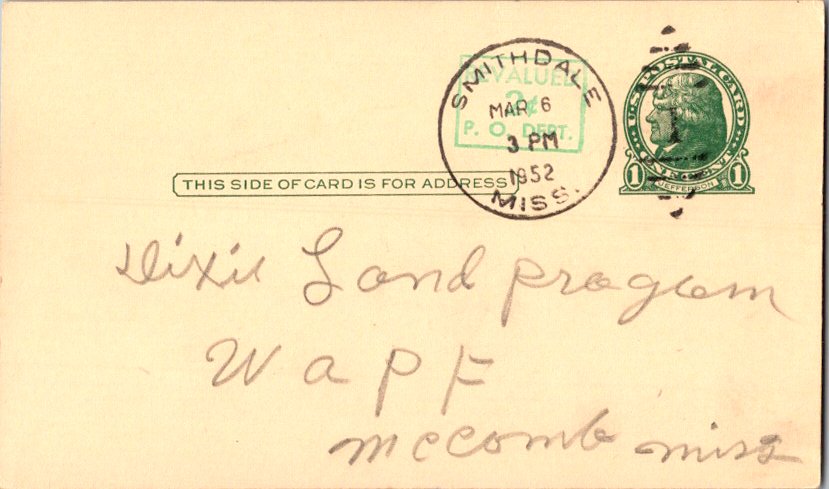 U.S. POSTAL CARD
1 JEFFERSON 1
REVALUED
2¢
P. O. DEPT.
SMITHDALE
MAR 6
3 PM
1952
MISS.
THIS SIDE OF CARD IS FOR ADDRESS
Dixie Land program
W a P F
mccomb miss